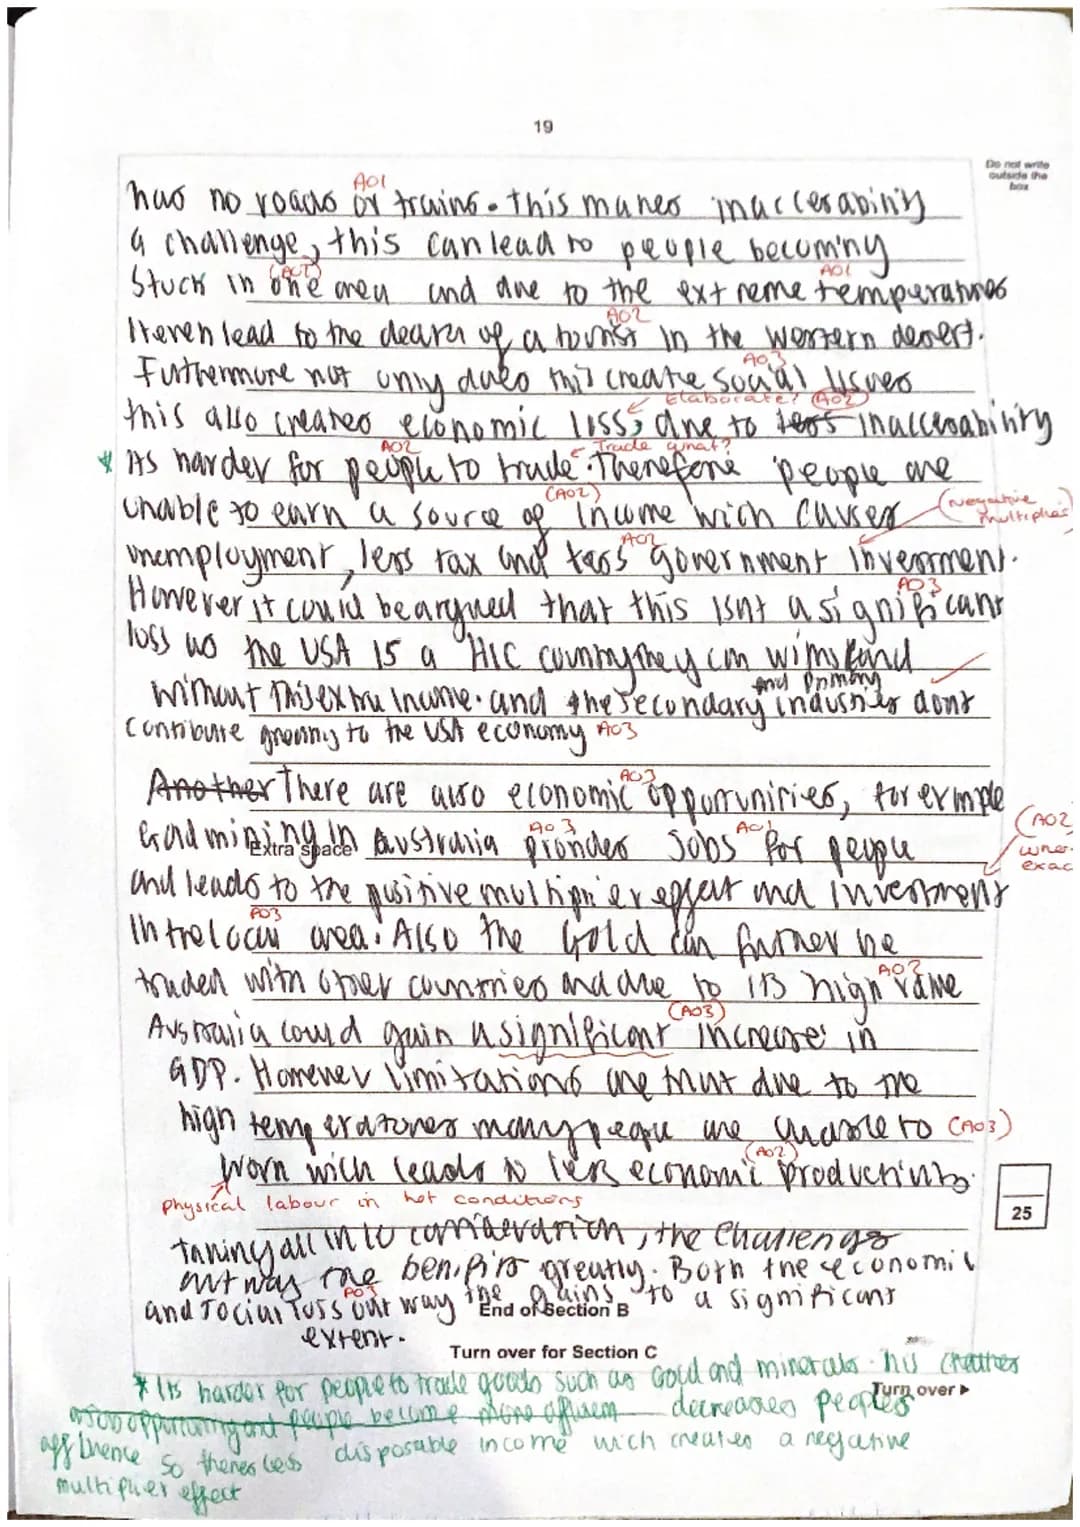 19
Do not write
outside the
box
AO1
has no roads or trains. this makes inaccesability
a challenge, this can lead to people becoming
(AO1) AO1
stuck in one area and due to the extreme temperatures
AO2
it even lead to the death of a tourist in the western desert.
AO3
Futhermore not only does this create social issues
Elaborate? (AO2)
this also creates economic loss, due to less inaccesability
AO2 Trade what?
* As harder for people to trade. Therefore people are
(AO2) (Negative
unable to earn a source of income wich causes
multiplier)
AO2
unemployment, less tax and less government investment.
AO3
However it could be argued that this isnt a significant
loss as the USA is a HIC country they can wimstand
and primary
without this extra income. and the secondary industries dont
contribute greatly to the USA economy AO3
AO3
Another There are also economic opportunities, for exmple
AO3 AO1 (AO2)
Gold mining in Australia provides jobs for people
Extra space
and leads to the positive multiplier effect and investment
AO3
in the local area. Also the Gold can further be
AO2
traded with other countries and due to its high value
(AO3)
Australia could gain a significant increase in
GDP. However limitations are that due to the
high temperatures many people are unable to (AO3)
(AO2)
work wich leads to less economic productivity.
physical labour in hot conditions
25
taking all into consideration, the challenges
outway the benifits greatly. Both the economic
AO3
and social loss out way the gains to a significant
End of Section B
extent.
Turn over for Section C
Turn over ►
* Its harder for people to trade goods such as Gold and minerals. his creates
and people become more affluent decreases peoples
affluence so theres less disposable income wich creates a negative
multiplier effect